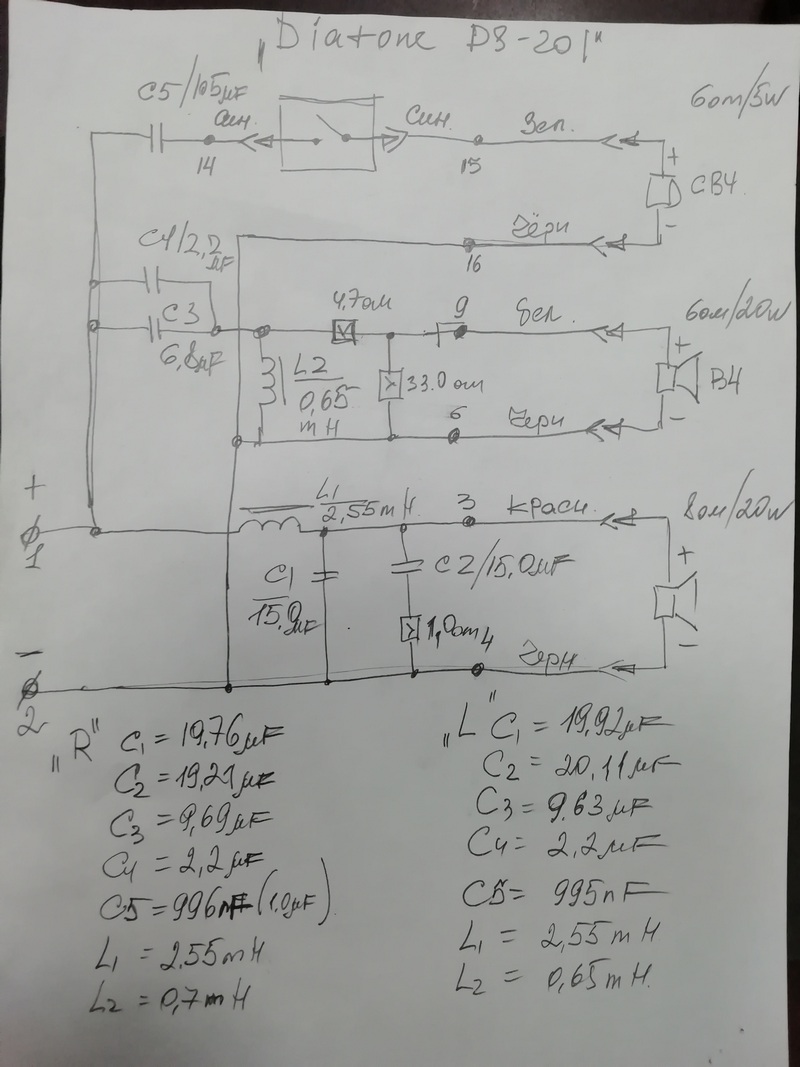 „Diatone DS-201"
C5/1.05μF
син.
14
Син.
15
Зел.
6ом/5w
+
СВЧ
-
Чёрн
16
C4/2,2
μF
C3
6,8μF
4,7ом
9
бел.
6ом/20w
+
ВЧ
-
L2
0,65
mH
33.0 ом
6
Черн
+
1
L1
2,55mH.
3
красн.
8ом/20w
+
-
C1
15,0μF
C2/15,0μF
1,0ом
4
Черн
-
2
„R"
C1 = 19,76μF
C2 = 19,21μF
C3 = 9,69μF
C4 = 2,2μF
C5 = 996nF (1.0μF)
L1 = 2,55mH
L2 = 0,7mH
„L"
C1 = 19,92μF
C2 = 20,11μF
C3 = 9.63μF
C4 = 2,2μF
C5 = 995nF
L1 = 2,55mH
L2 = 0,65mH.